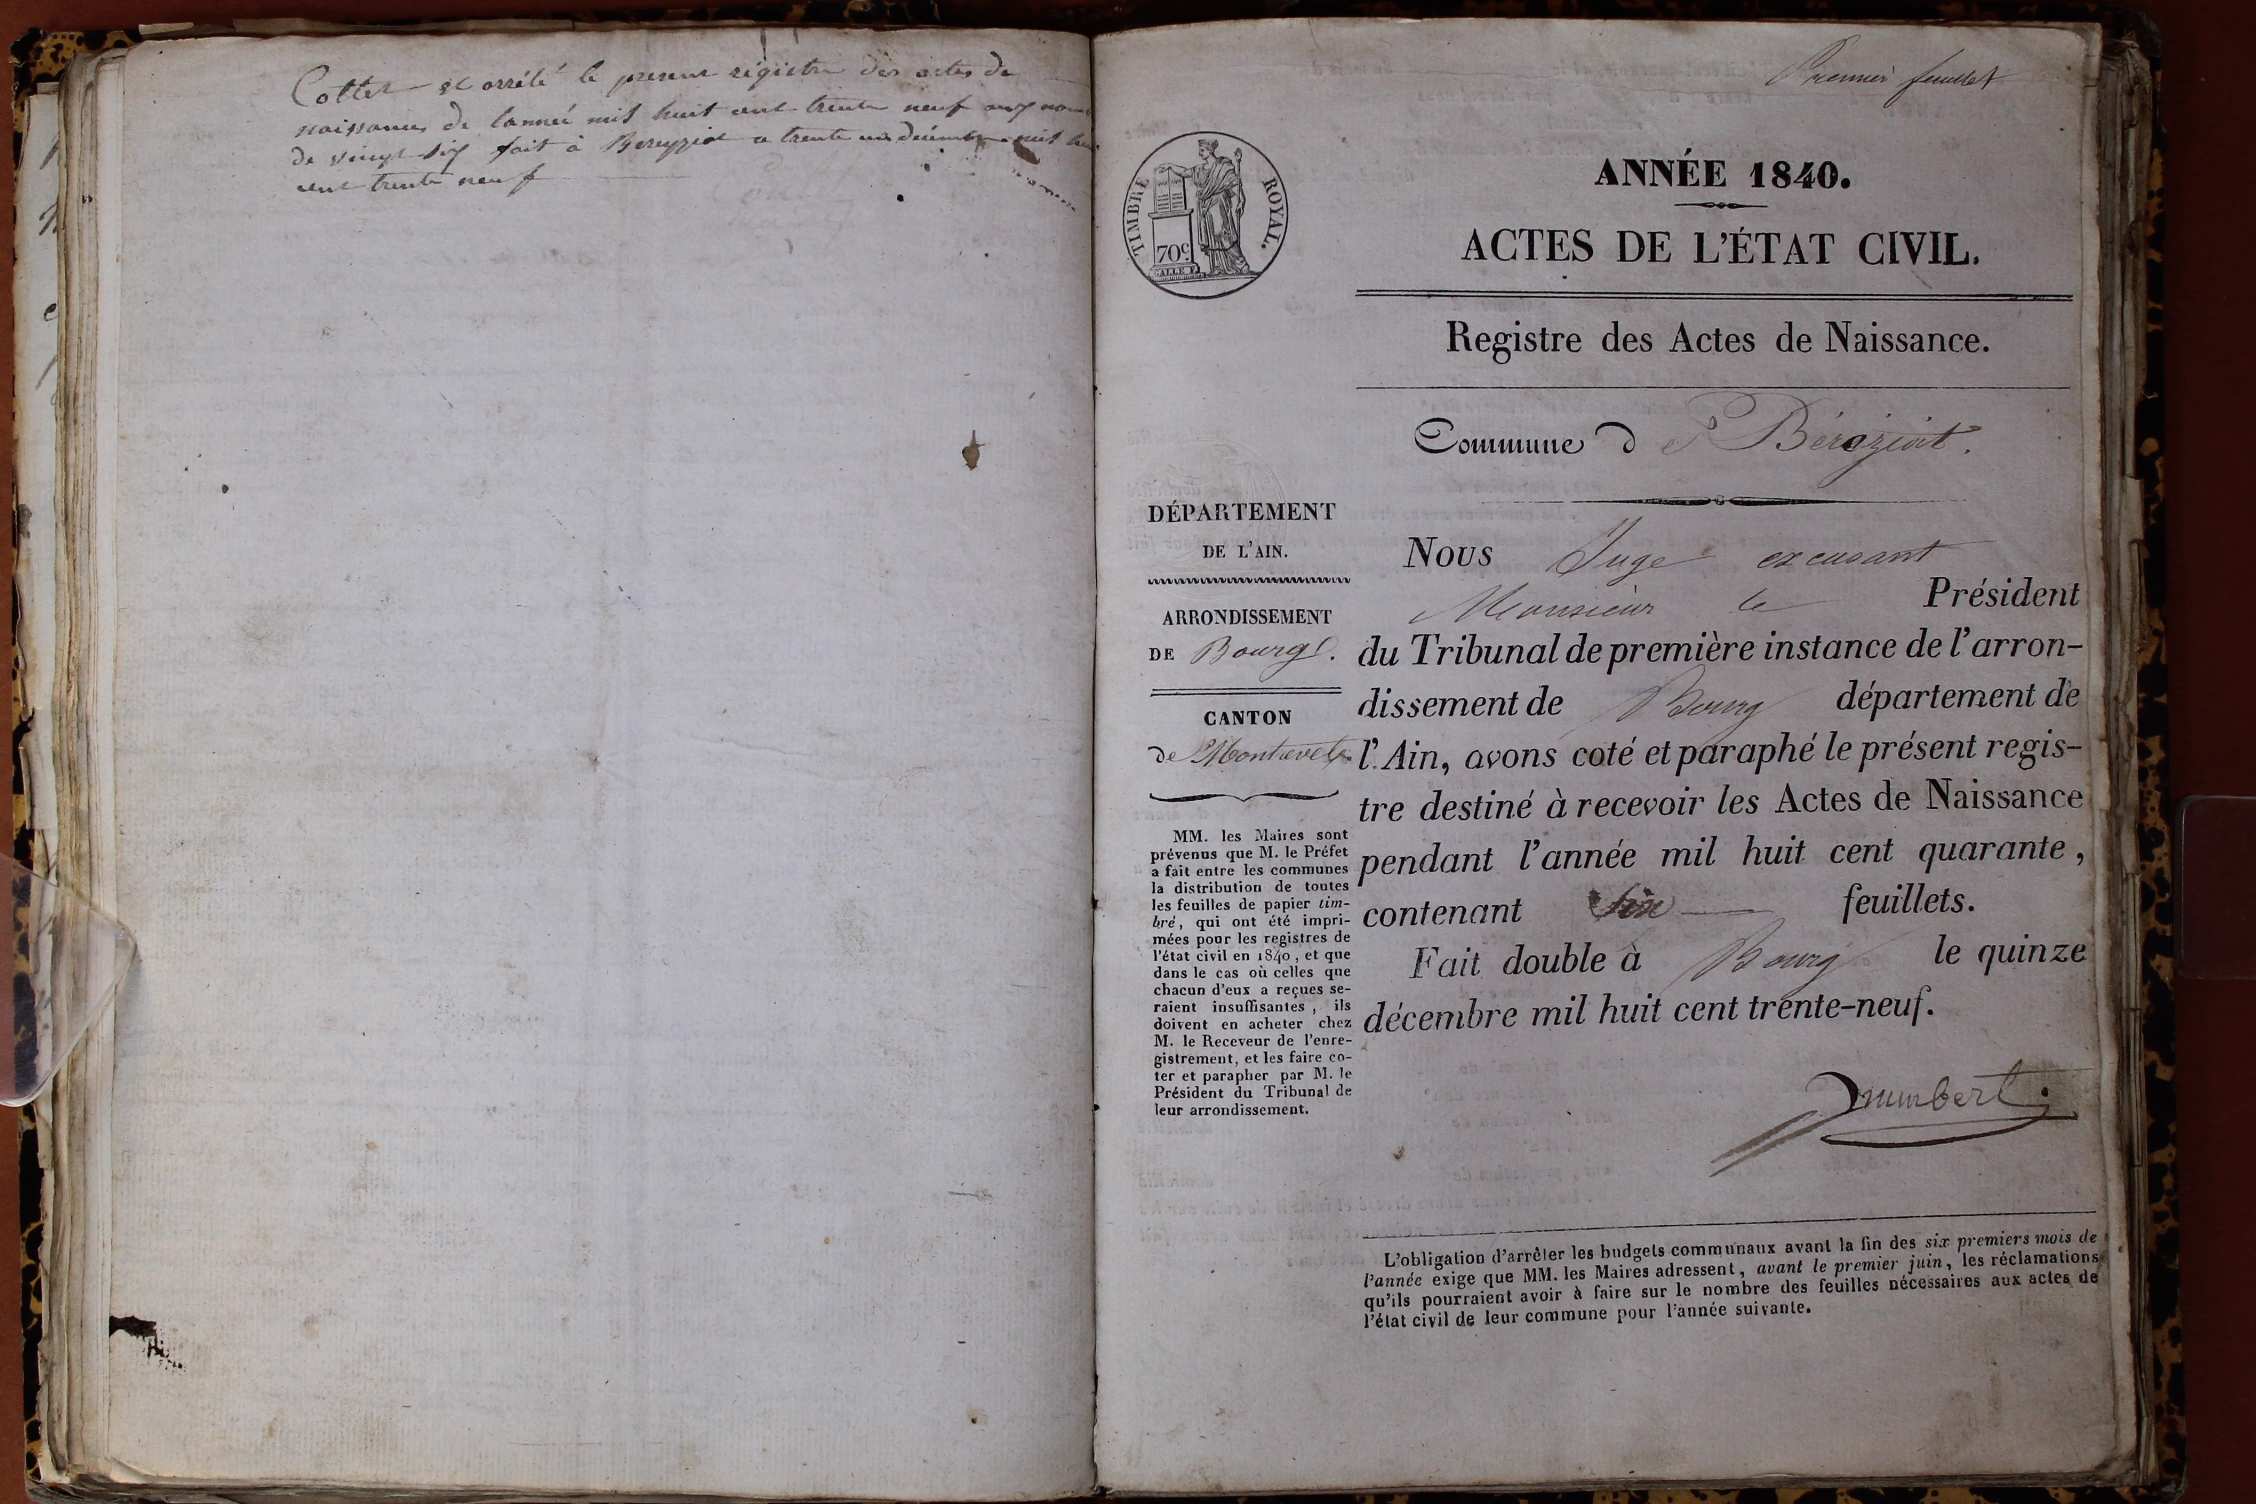 Cottet et arrété le present régistre des actes de
naissances de lannée mil huit cent trente neuf au nom
de vingt six fait à Bereyziat a trente un décembre mil hui
cent trente neuf
Premier feuillet
TIMBRE ROYAL.
70c
ANNÉE 1840.
ACTES DE L'ÉTAT CIVIL.
Registre des Actes de Naissance.
Commune de Béréziat.
DÉPARTEMENT
DE L'AIN.
ARRONDISSEMENT
DE Bourg.
CANTON
de Montrevel
MM. les Maires sont
prévenus que M. le Préfet
a fait entre les communes
la distribution de toutes
les feuilles de papier tim-
bré, qui ont été impri-
mées pour les registres de
l'état civil en 1840, et que
dans le cas où celles que
chacun d'eux a reçues se-
raient insuffisantes, ils
doivent en acheter chez
M. le Receveur de l'enre-
gistrement, et les faire co-
ter et parapher par M. le
Président du Tribunal de
leur arrondissement.
Nous Juge excusant
Monsieur le Président
du Tribunal de première instance de l'arron-
dissement de Bourg département de
l'Ain, avons coté et paraphé le présent regis-
tre destiné à recevoir les Actes de Naissance
pendant l'année mil huit cent quarante,
contenant Six feuillets.
Fait double à Bourg le quinze
décembre mil huit cent trente-neuf.
L'obligation d'arrêter les budgets communaux avant la fin des six premiers mois de
l'année exige que MM. les Maires adressent, avant le premier juin, les réclamations
qu'ils pourraient avoir à faire sur le nombre des feuilles nécessaires aux actes de
l'état civil de leur commune pour l'année suivante.